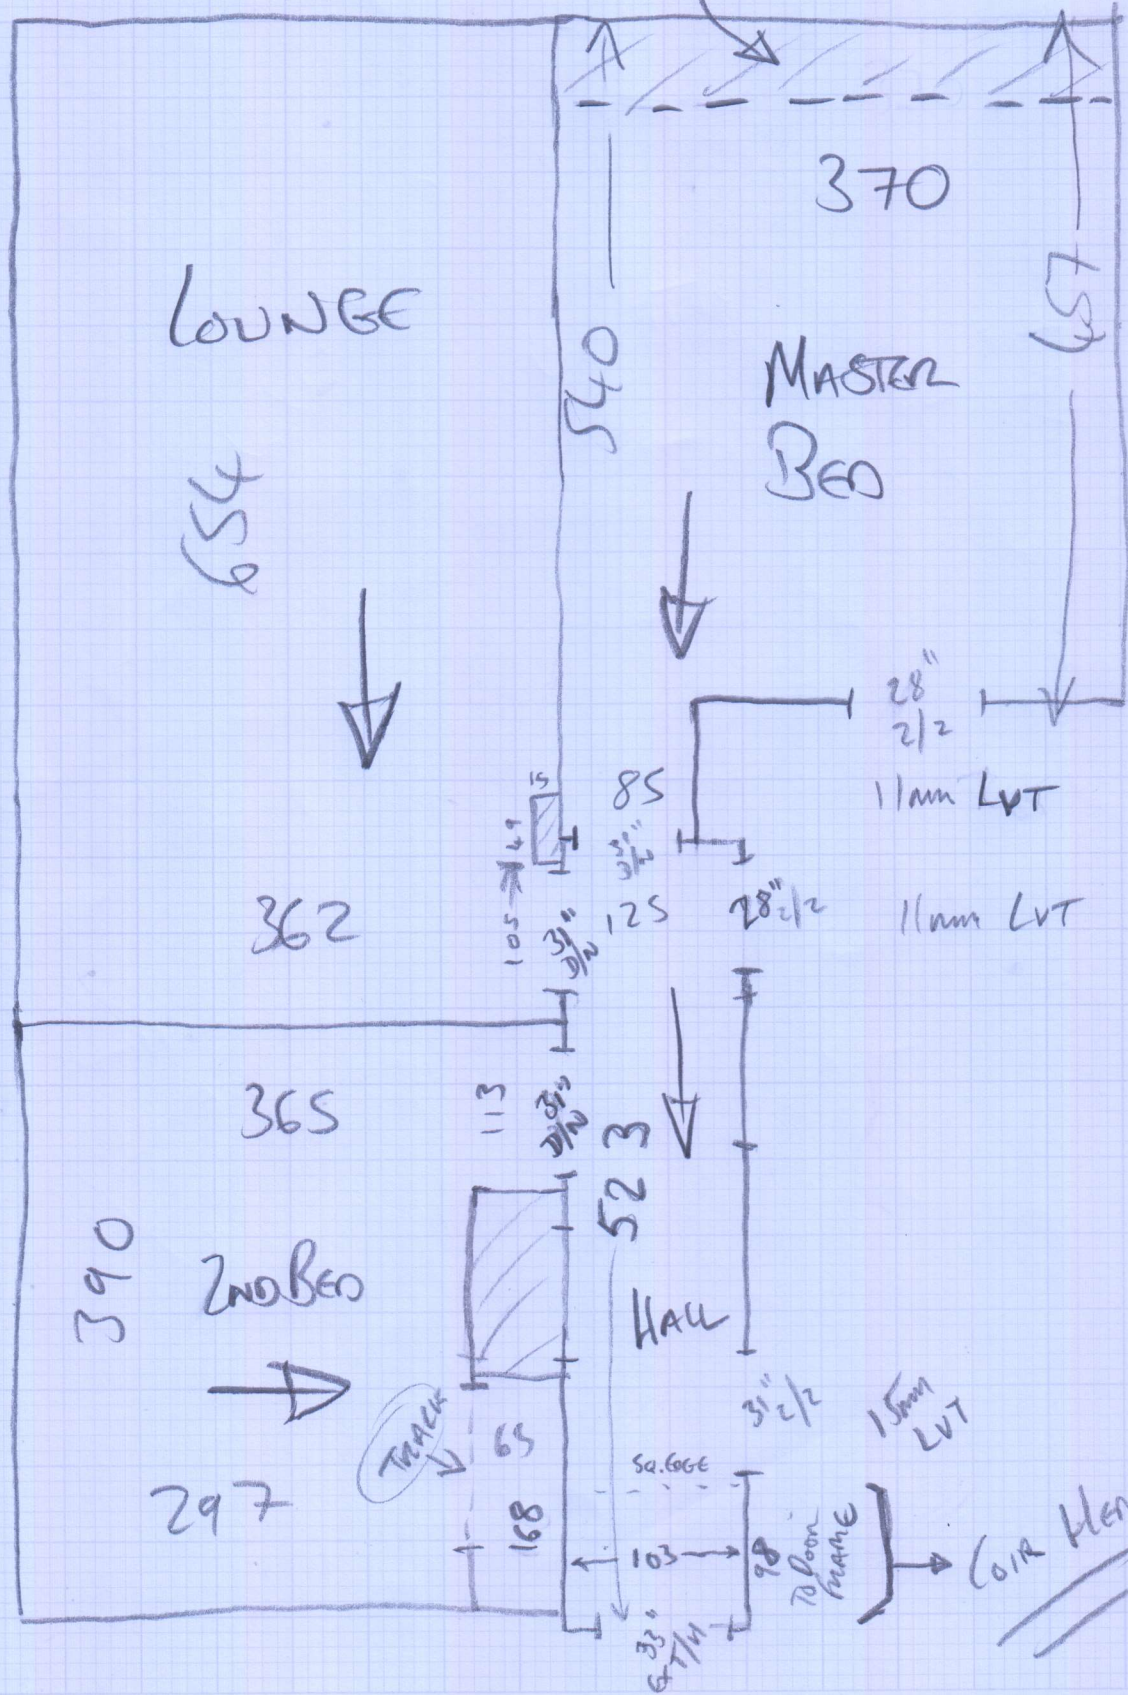 370
657
LOUNGE
540
MASTER
BED
654
28"
2/2
11mm LVT
15
85
49
31"
D/N
362
105
31"
D/N
125
28" 2/2
11mm LVT
365
113
31"
D/N
523
390
2ND BED
HALL
TRACK
63
31"
2/2
15mm
LVT
SQ. EDGE
297
168
103
98
TO DOOR
FRAME
COIR
33"
T/H